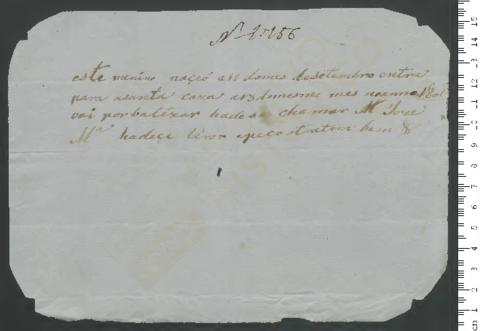 Nº 1:156
este menino naçeó a 11 domes desetembro entra
para asanta caza a 13 domesmo mes noanno
vai porbatizar hadese chamar Mel Joze
Ma hadeçe livro epeçostratem bem &